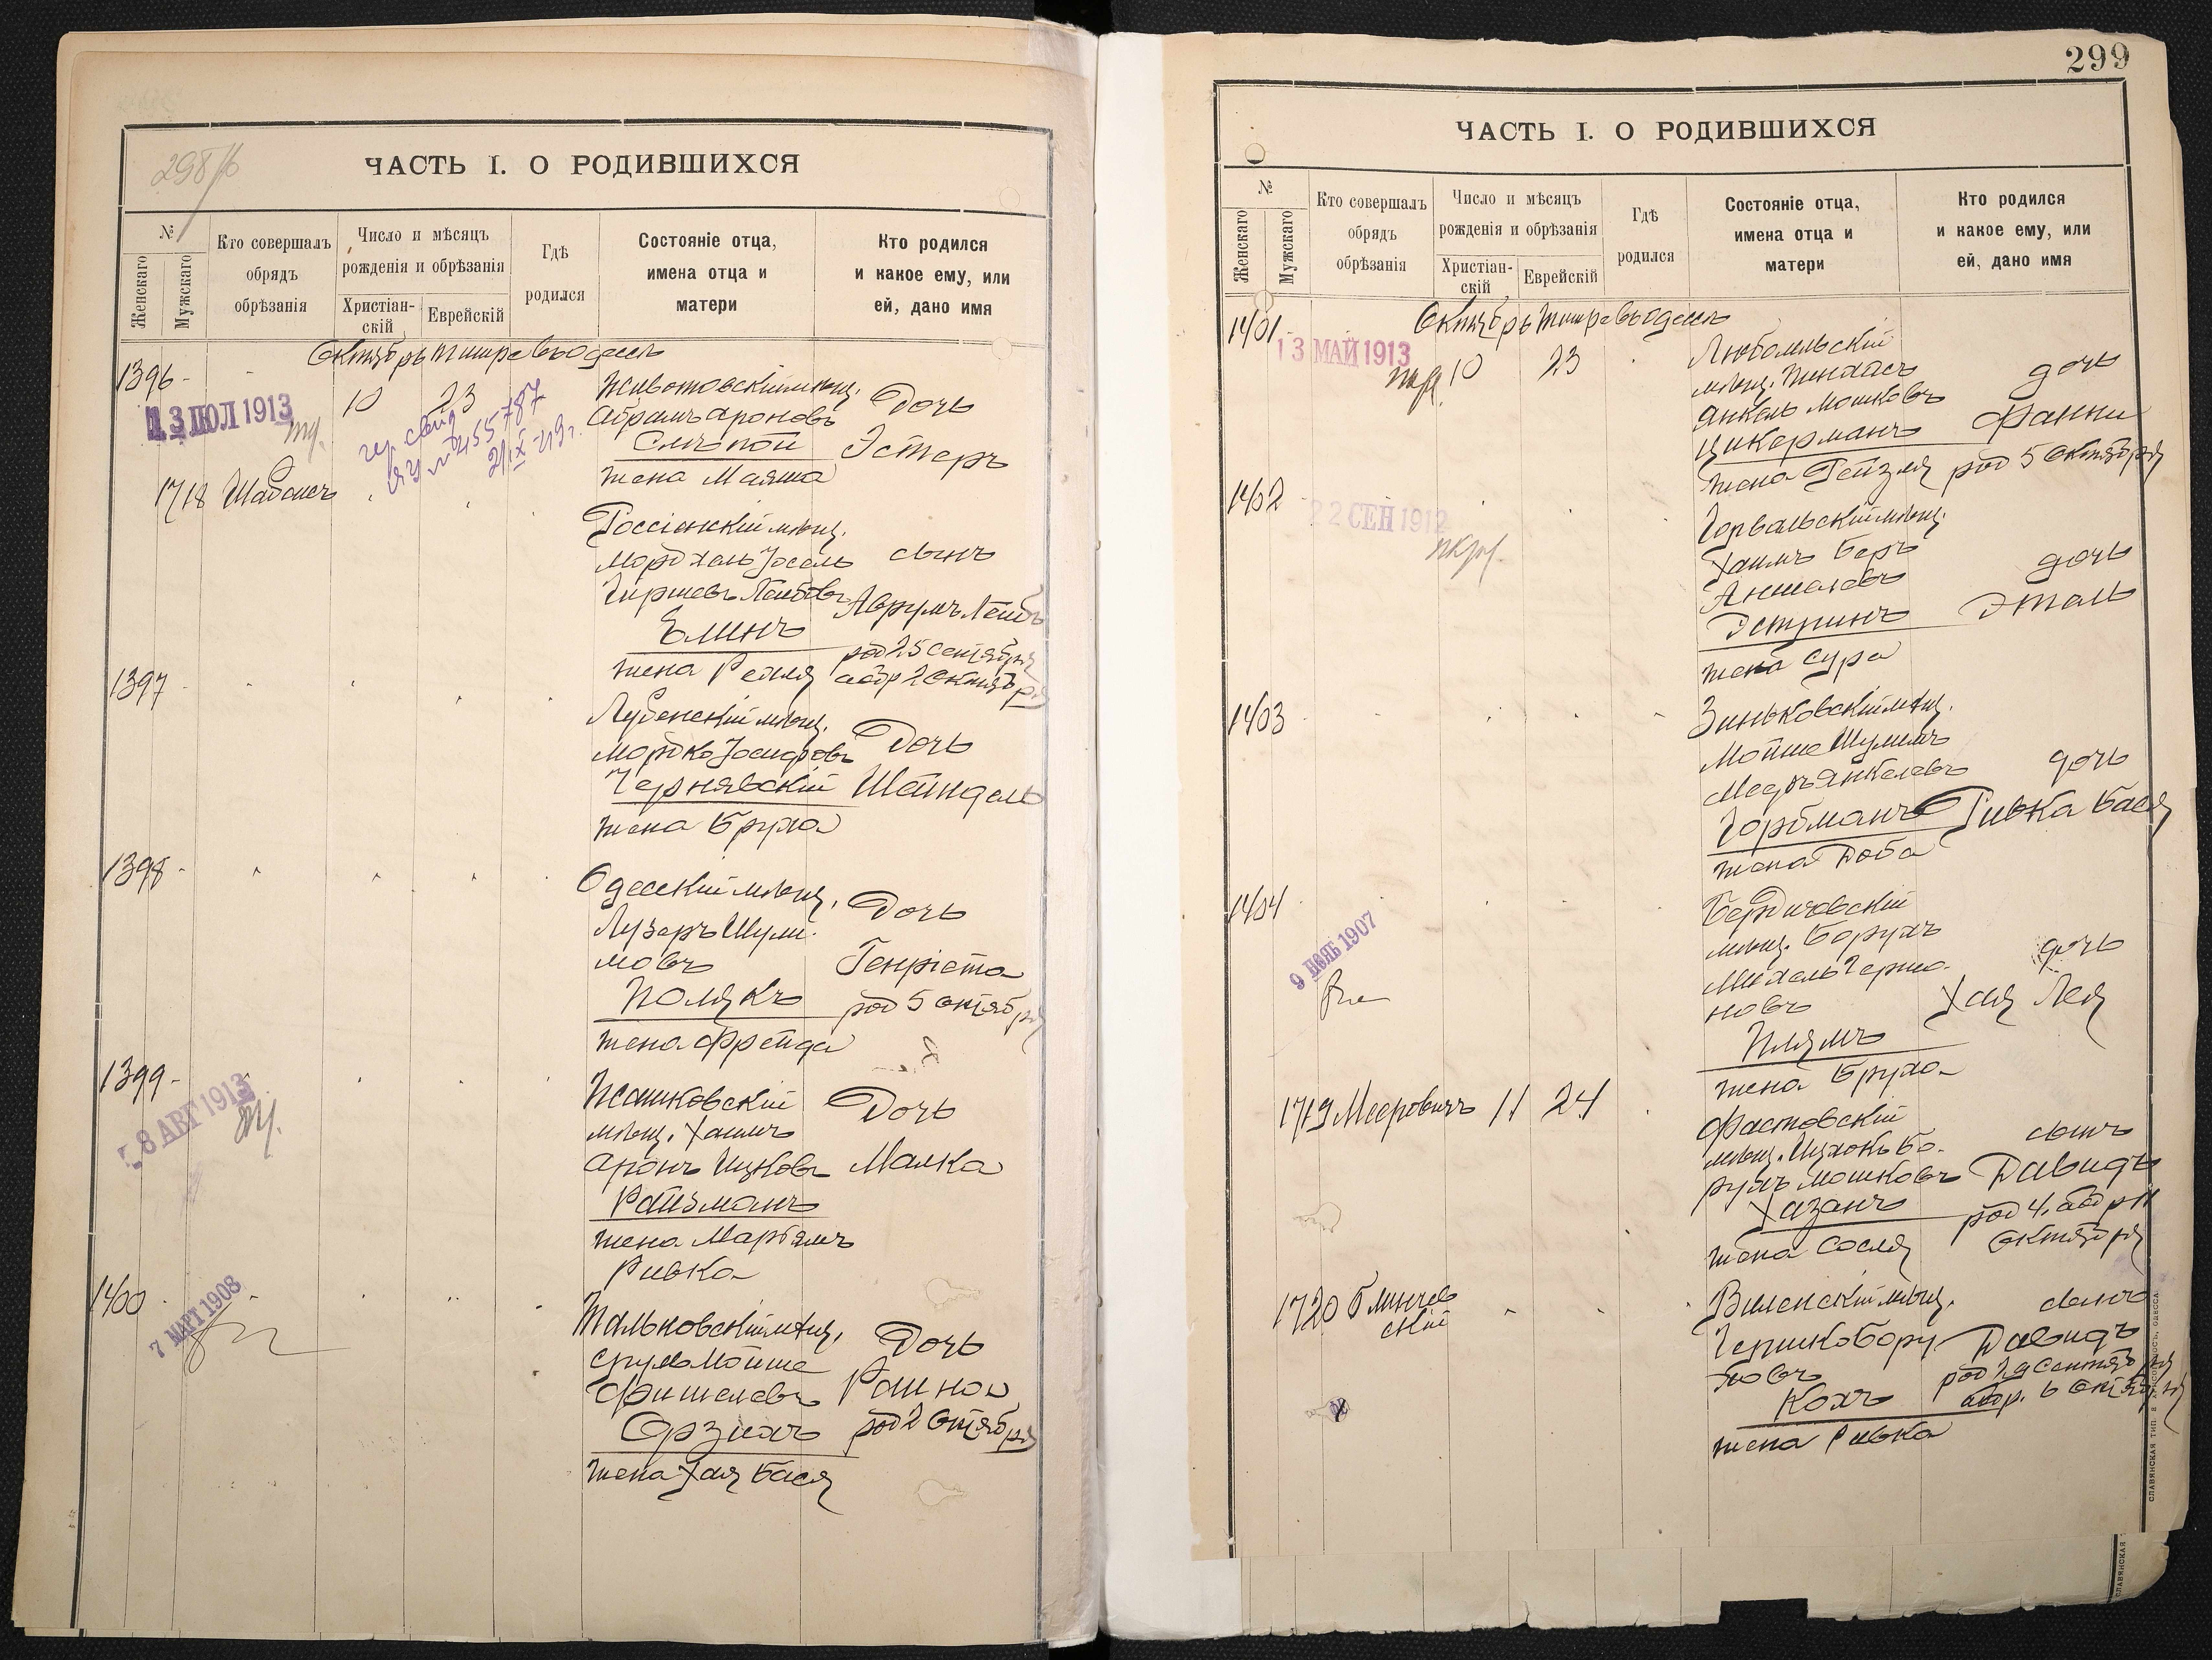 298/б
ЧАСТЬ I. О РОДИВШИХСЯ
№
Женскаго
Мужскаго
Кто совершалъ
обрядъ
обрѣзанія
Число и мѣсяцъ
рожденія и обрѣзанія
Христіан-
скій
Еврейскій
Гдѣ
родился
Состояніе отца,
имена отца и
матери
Кто родился
и какое ему, или
ей, дано имя
Октябрь Тишре въ Одессѣ
1396
13 ІЮЛ 1913
10
23
Животовскій мѣщ.
Абрамъ Ароновъ
Слѣпой
жена Маяша
Дочь
Эстеръ
№ 455787
21 IX 49 г.
1718
Россіенскій мѣщ.
Мордхель Іосель
Гиршевъ Лейбовъ
Блинъ
жена Рейля
сынъ
Аврумъ Лейбъ
род 25 Сентября
обр 2 Октября
1397
Лубенскій мѣщ.
Мордко Іосифовъ
Чернявскій
жена Бруха
Дочь
Шейндель
1398
Одесскій мѣщ.
Лузеръ Шули-
мовъ
Полякъ
жена Фрейда
Дочь
Генріета
род 5 Октября
1399
8 АВГ 1913
Жашковскій
мѣщ. Хаимъ
Аронъ Ицковъ
Райзманъ
жена Маріямъ
Ривка
Дочь
Малка
1400
7 МАРТ 1908
Тальновскій мѣщ.
Сруль Мойше
Фишелевъ
жена Хая Бася
Дочь
род 2 Октября
299
ЧАСТЬ I. О РОДИВШИХСЯ
№
Женскаго
Мужскаго
Кто совершалъ
обрядъ
обрѣзанія
Число и мѣсяцъ
рожденія и обрѣзанія
Христіан-
скій
Еврейскій
Гдѣ
родился
Состояніе отца,
имена отца и
матери
Кто родился
и какое ему, или
ей, дано имя
Октябрь Тишре въ Одессѣ
1401
13 МАЙ 1913
10
23
Любомльскій
мѣщ. Пинхасъ
Янкель Мошковъ
Цикерманъ
жена Рейзля
дочь
Фанни
род 5 Октября
1402
22 СЕН 1912
Горвальскій мѣщ.
Хаимъ Беръ
Аншелевъ
Эстринъ
жена Сура
дочь
Этель
1403
Зиньковскій мѣщ.
Мойше Шулимъ
Мееръ Янкелевъ
Горбманъ
жена Доба
дочь
Ривка Бася
1404
9 1907
Бердичевскій
мѣщ. Борухъ
Михель Гершо-
новъ
Плямъ
жена Бруха
дочь
Хая Лея
1719 Мееровичъ
11
24
Фастовскій
мѣщ. Ицхокъ Бо-
рухъ Мошковъ
Хазанъ
жена Сося
сынъ
Давидъ
род 4, обр 11
Октября
1720 Блинчев
скій
Виленскій мѣщ.
Гершко Бору-
ховъ
Кохъ
жена Ривка
сынъ
Давидъ
род 29 Сентября
обр. 6 Октября
СЛАВЯНСКАЯ ТИП.
ОДЕССА.
СЛАВЯНСКАЯ